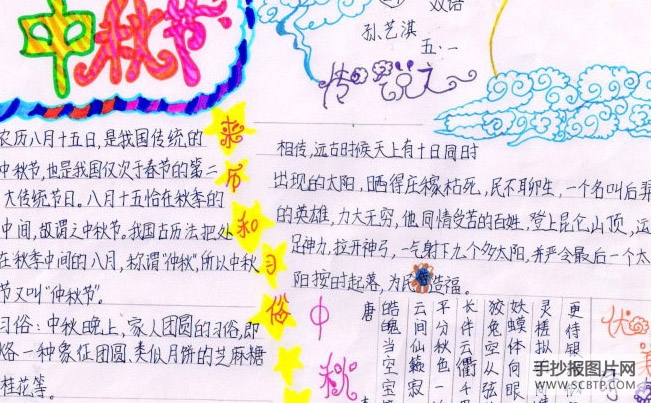 中秋节
双语
孙艺淇
五·一
传说之
来历和习俗
农历八月十五日,是我国传统的
中秋节,也是我国仅次于春节的第二
大传统节日。八月十五恰在秋季的
中间,故谓之中秋节。我国古历法把处
在秋季中间的八月,称谓“仲秋”,所以中秋
节又叫“仲秋节”。
习俗:中秋晚上,家人团圆的习俗,即
烙一种象征团圆、类似月饼的芝麻糖
桂花等。
相传,远古时候天上有十日同时
出现的太阳,晒得庄稼枯死,民不聊生,一个名叫后羿
的英雄,力大无穷,他同情受苦的百姓,登上昆仑山顶,运
足神力,拉开神弓,一气射下九个多太阳,并严令最后一个太
阳按时起落,为民造福。
中秋
唐
皓魄当空宝
云间仙籁寂
平分秋色一
长伴云衢千
狡兔空从弦
妖蟆休向眼
灵槎拟
更待银
手抄报图片网
WWW.SCBTP.COM